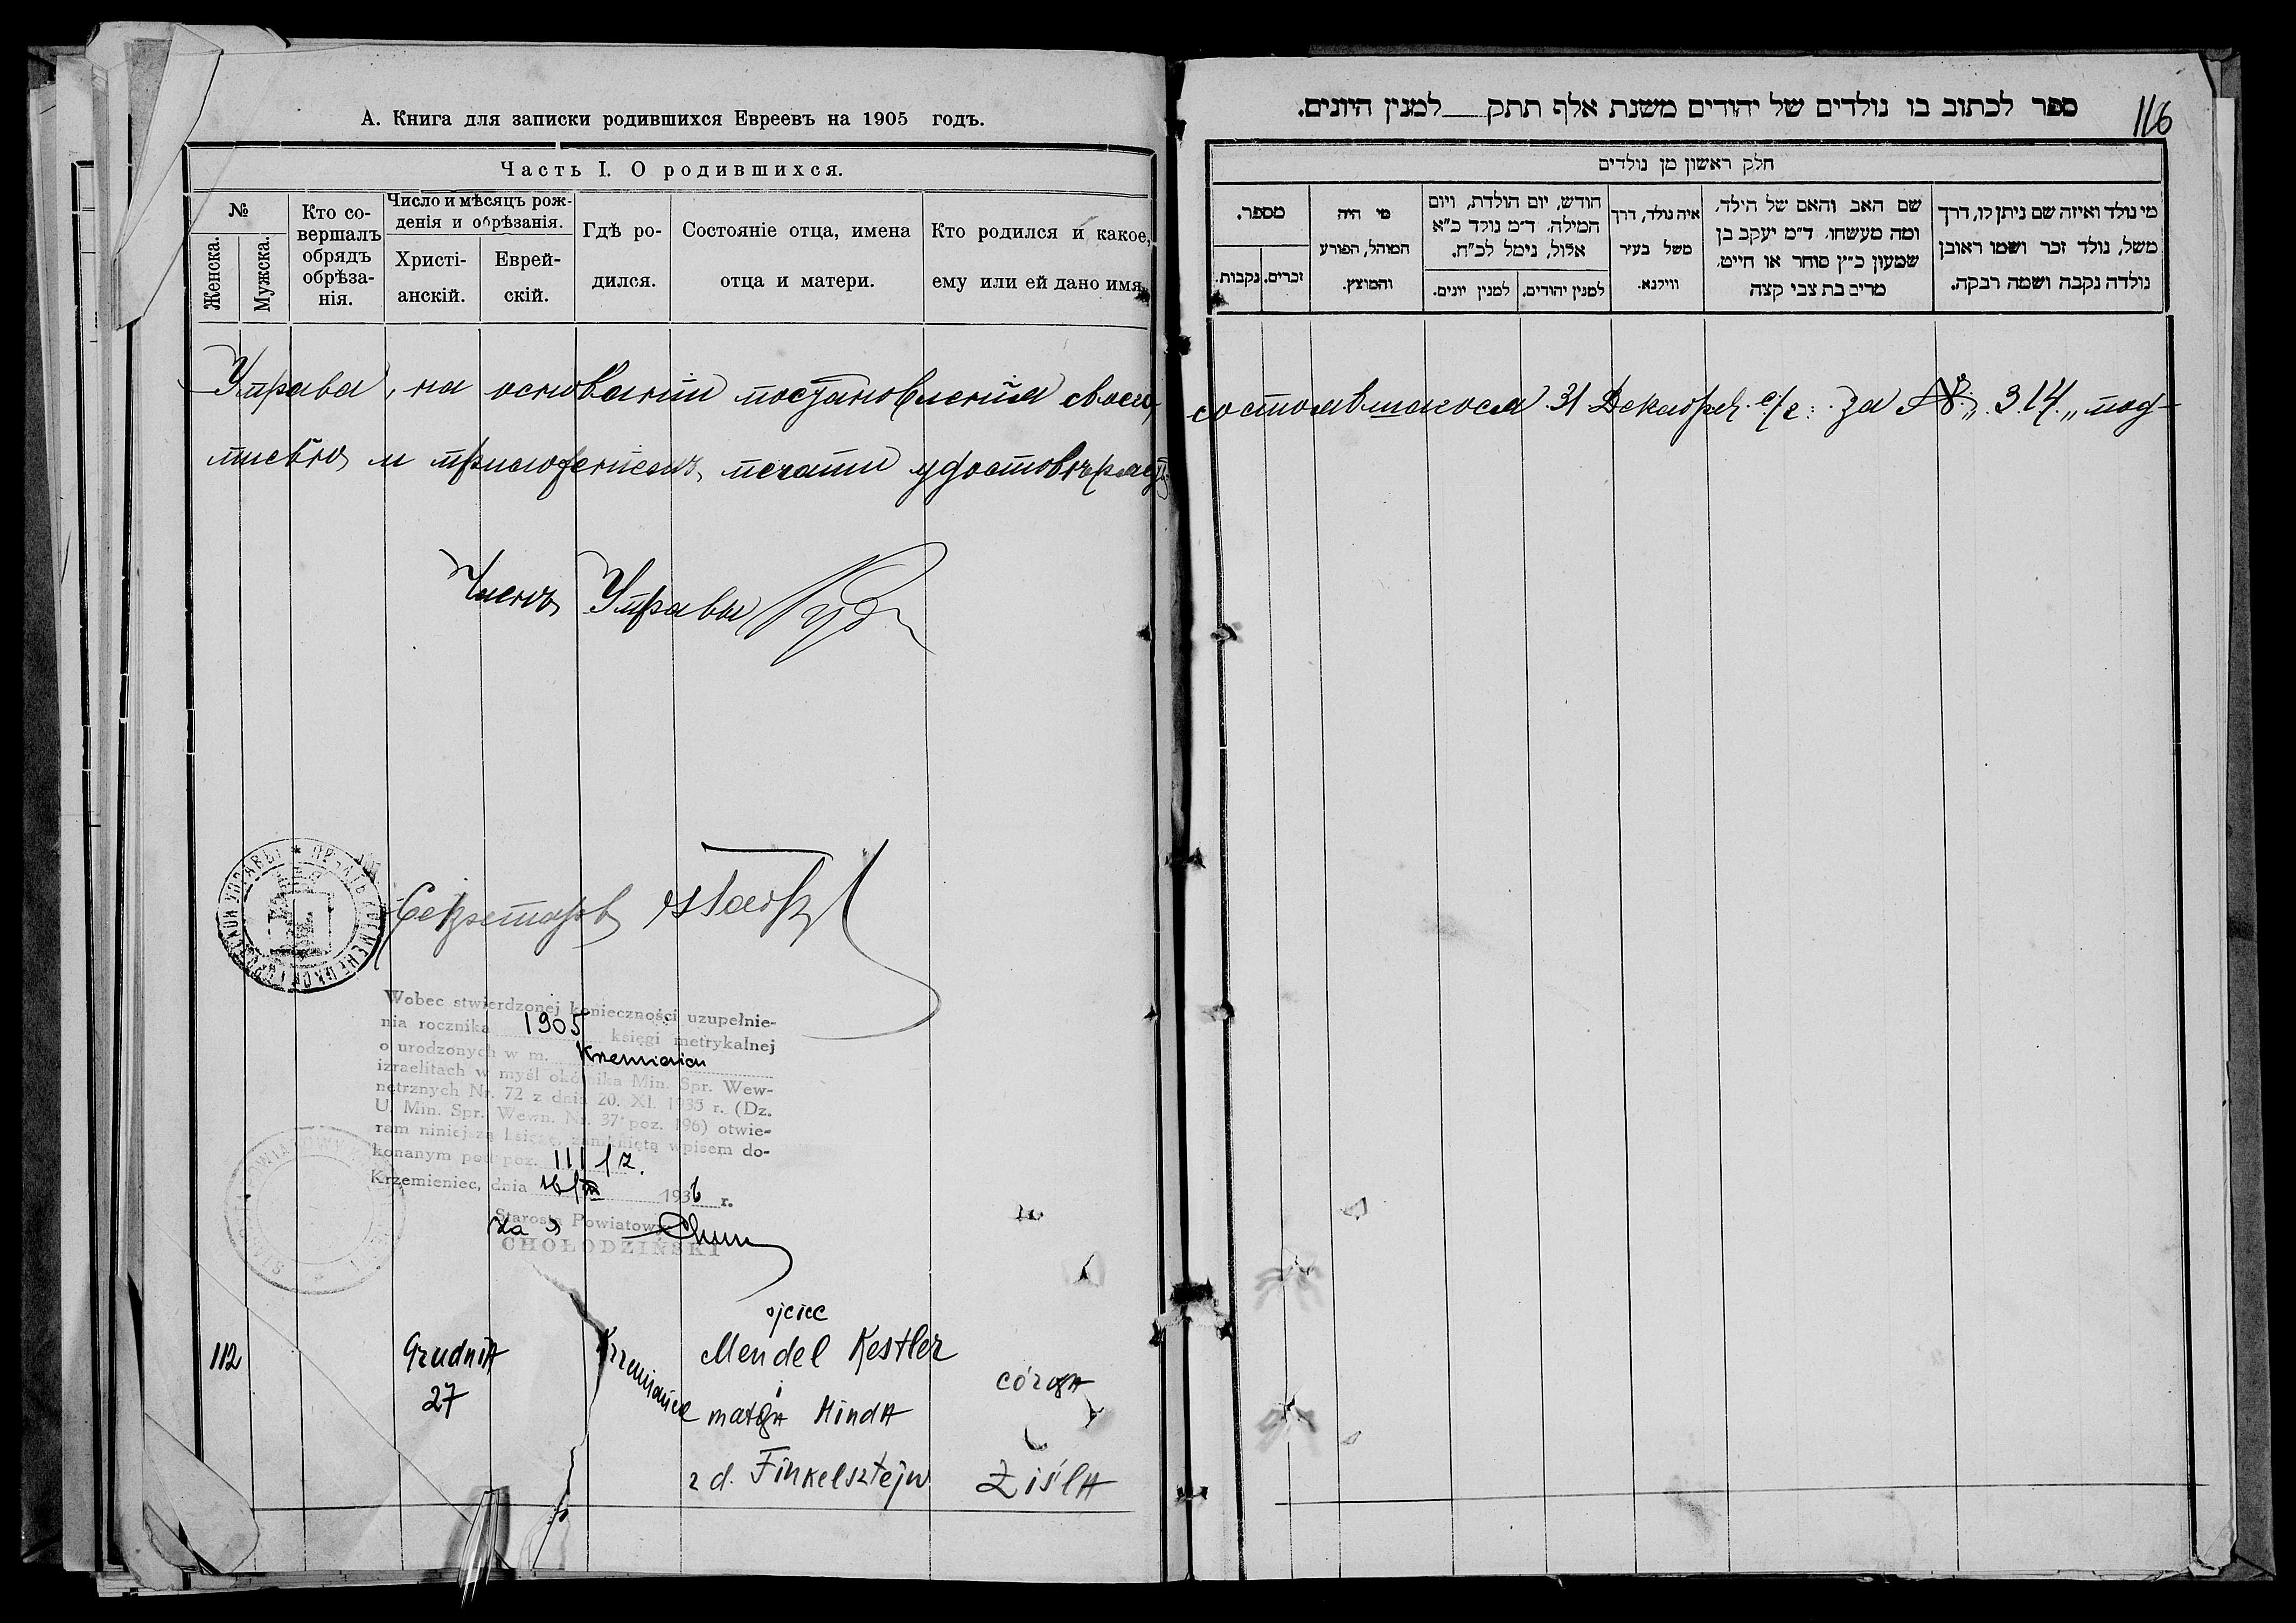 А. Книга для записки родившихся Евреевъ на 1905 годъ.
Часть I. О родившихся.
№
Женска.
Мужска.
Кто со-
вершалъ
обрядъ
обрѣза-
нія.
Число и мѣсяцъ рож-
денія и обрѣзанія.
Христі-
анскій.
Еврей-
скій.
Гдѣ ро-
дился.
Состояніе отца, имена
отца и матери.
Кто родился и какое,
ему или ей дано имя
Управа, на основаніи постановленія своего,
писью и приложеніемъ печати удостовѣряетъ.
Членъ Управы
Секретарь
Wobec stwierdzonej konieczności uzupełnie-
nia rocznika 1905 księgi metrykalnej
o urodzonych w m.
izraelitach w myśl okólnika Min. Spr. Wew-
nętrznych Nr. 72 z dnia 20. XI. 1935 r. (Dz.
U. Min. Spr. Wewn. Nr. 37 poz. 196) otwie-
ram niniejszą księgę, zamkniętą wpisem do-
konanym pod poz. 111
Krzemieniec, dnia 16/III 1936 r.
Starosta Powiatowy
za
CHOŁODZIŃSKI
112
Grudnia
27
Krzemieniec
ojciec
Mendel Kestler
i
matka Hinda
z d. Finkelsztejn
córka
Ziśla
116
ספר לכתוב בו נולדים של יהודים משנת אלף תתק למנין היונים.
חלק ראשון מן נולדים
מי נולד ואיזה שם ניתן לו, דרך
משל, נולד זכר ושמו ראובן
נולדה נקבה ושמה רבקה.
שם האב והאם של הילד,
ומה מעשהו, ד״מ יעקב בן
שמעון כ״ץ סוחר או חייט,
מרים בת צבי קצה
איה נולד, דרך
משל בעיר
ווילנא.
חודש, יום הולדת, ויום
המילה, ד״מ נולד כ״א
אלול, נימל לכ״ח.
למנין יהודים.
למנין יונים.
מי היה
המוהל, הפורע
והמוצץ.
מספר.
זכרים.
נקבות.
состоявшагося 31 Декабря с/г. за № 314 под-